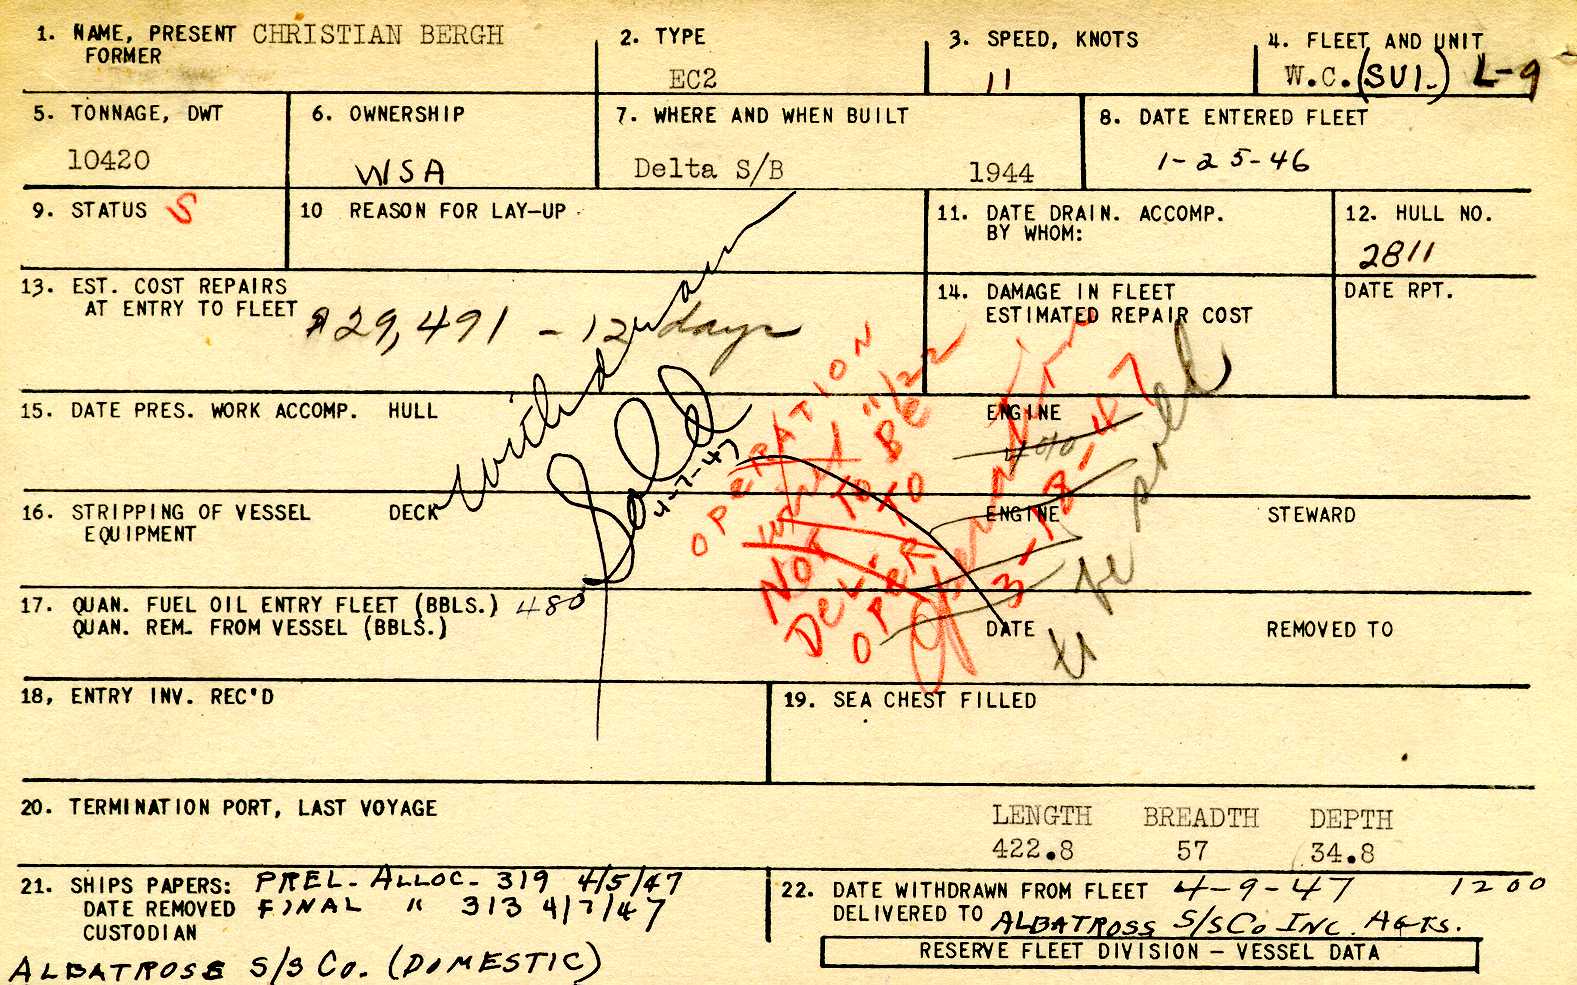 1. NAME, PRESENT CHRISTIAN BERGH
FORMER
2. TYPE
EC2
3. SPEED, KNOTS
11
4. FLEET AND UNIT
W.C.(SUI.) L-9
5. TONNAGE, DWT
10420
6. OWNERSHIP
WSA
7. WHERE AND WHEN BUILT
Delta S/B 1944
8. DATE ENTERED FLEET
1-25-46
9. STATUS S
10 REASON FOR LAY-UP
11. DATE DRAIN. ACCOMP.
BY WHOM:
12. HULL NO.
2811
13. EST. COST REPAIRS
AT ENTRY TO FLEET $29,491 - 12 days
14. DAMAGE IN FLEET
ESTIMATED REPAIR COST
DATE RPT.
Withdrawn
Sold
4-7-47
OPERATION
11/22
NOT TO BE
DEL. TO
OPER
3-18-47
to be sold
15. DATE PRES. WORK ACCOMP. HULL
ENGINE
16. STRIPPING OF VESSEL DECK
EQUIPMENT
ENGINE
STEWARD
17. QUAN. FUEL OIL ENTRY FLEET (BBLS.) 480
QUAN. REM. FROM VESSEL (BBLS.)
DATE
REMOVED TO
18, ENTRY INV. REC'D
19. SEA CHEST FILLED
20. TERMINATION PORT, LAST VOYAGE
LENGTH BREADTH DEPTH
422.8 57 34.8
21. SHIPS PAPERS: PREL. ALLOC. 319 4/5/47
DATE REMOVED FINAL " 313 4/7/47
CUSTODIAN
ALBATROSE S/S CO. (DOMESTIC)
22. DATE WITHDRAWN FROM FLEET 4-9-47 1200
DELIVERED TO ALBATROSS S/S Co INC. AGTS.
RESERVE FLEET DIVISION - VESSEL DATA